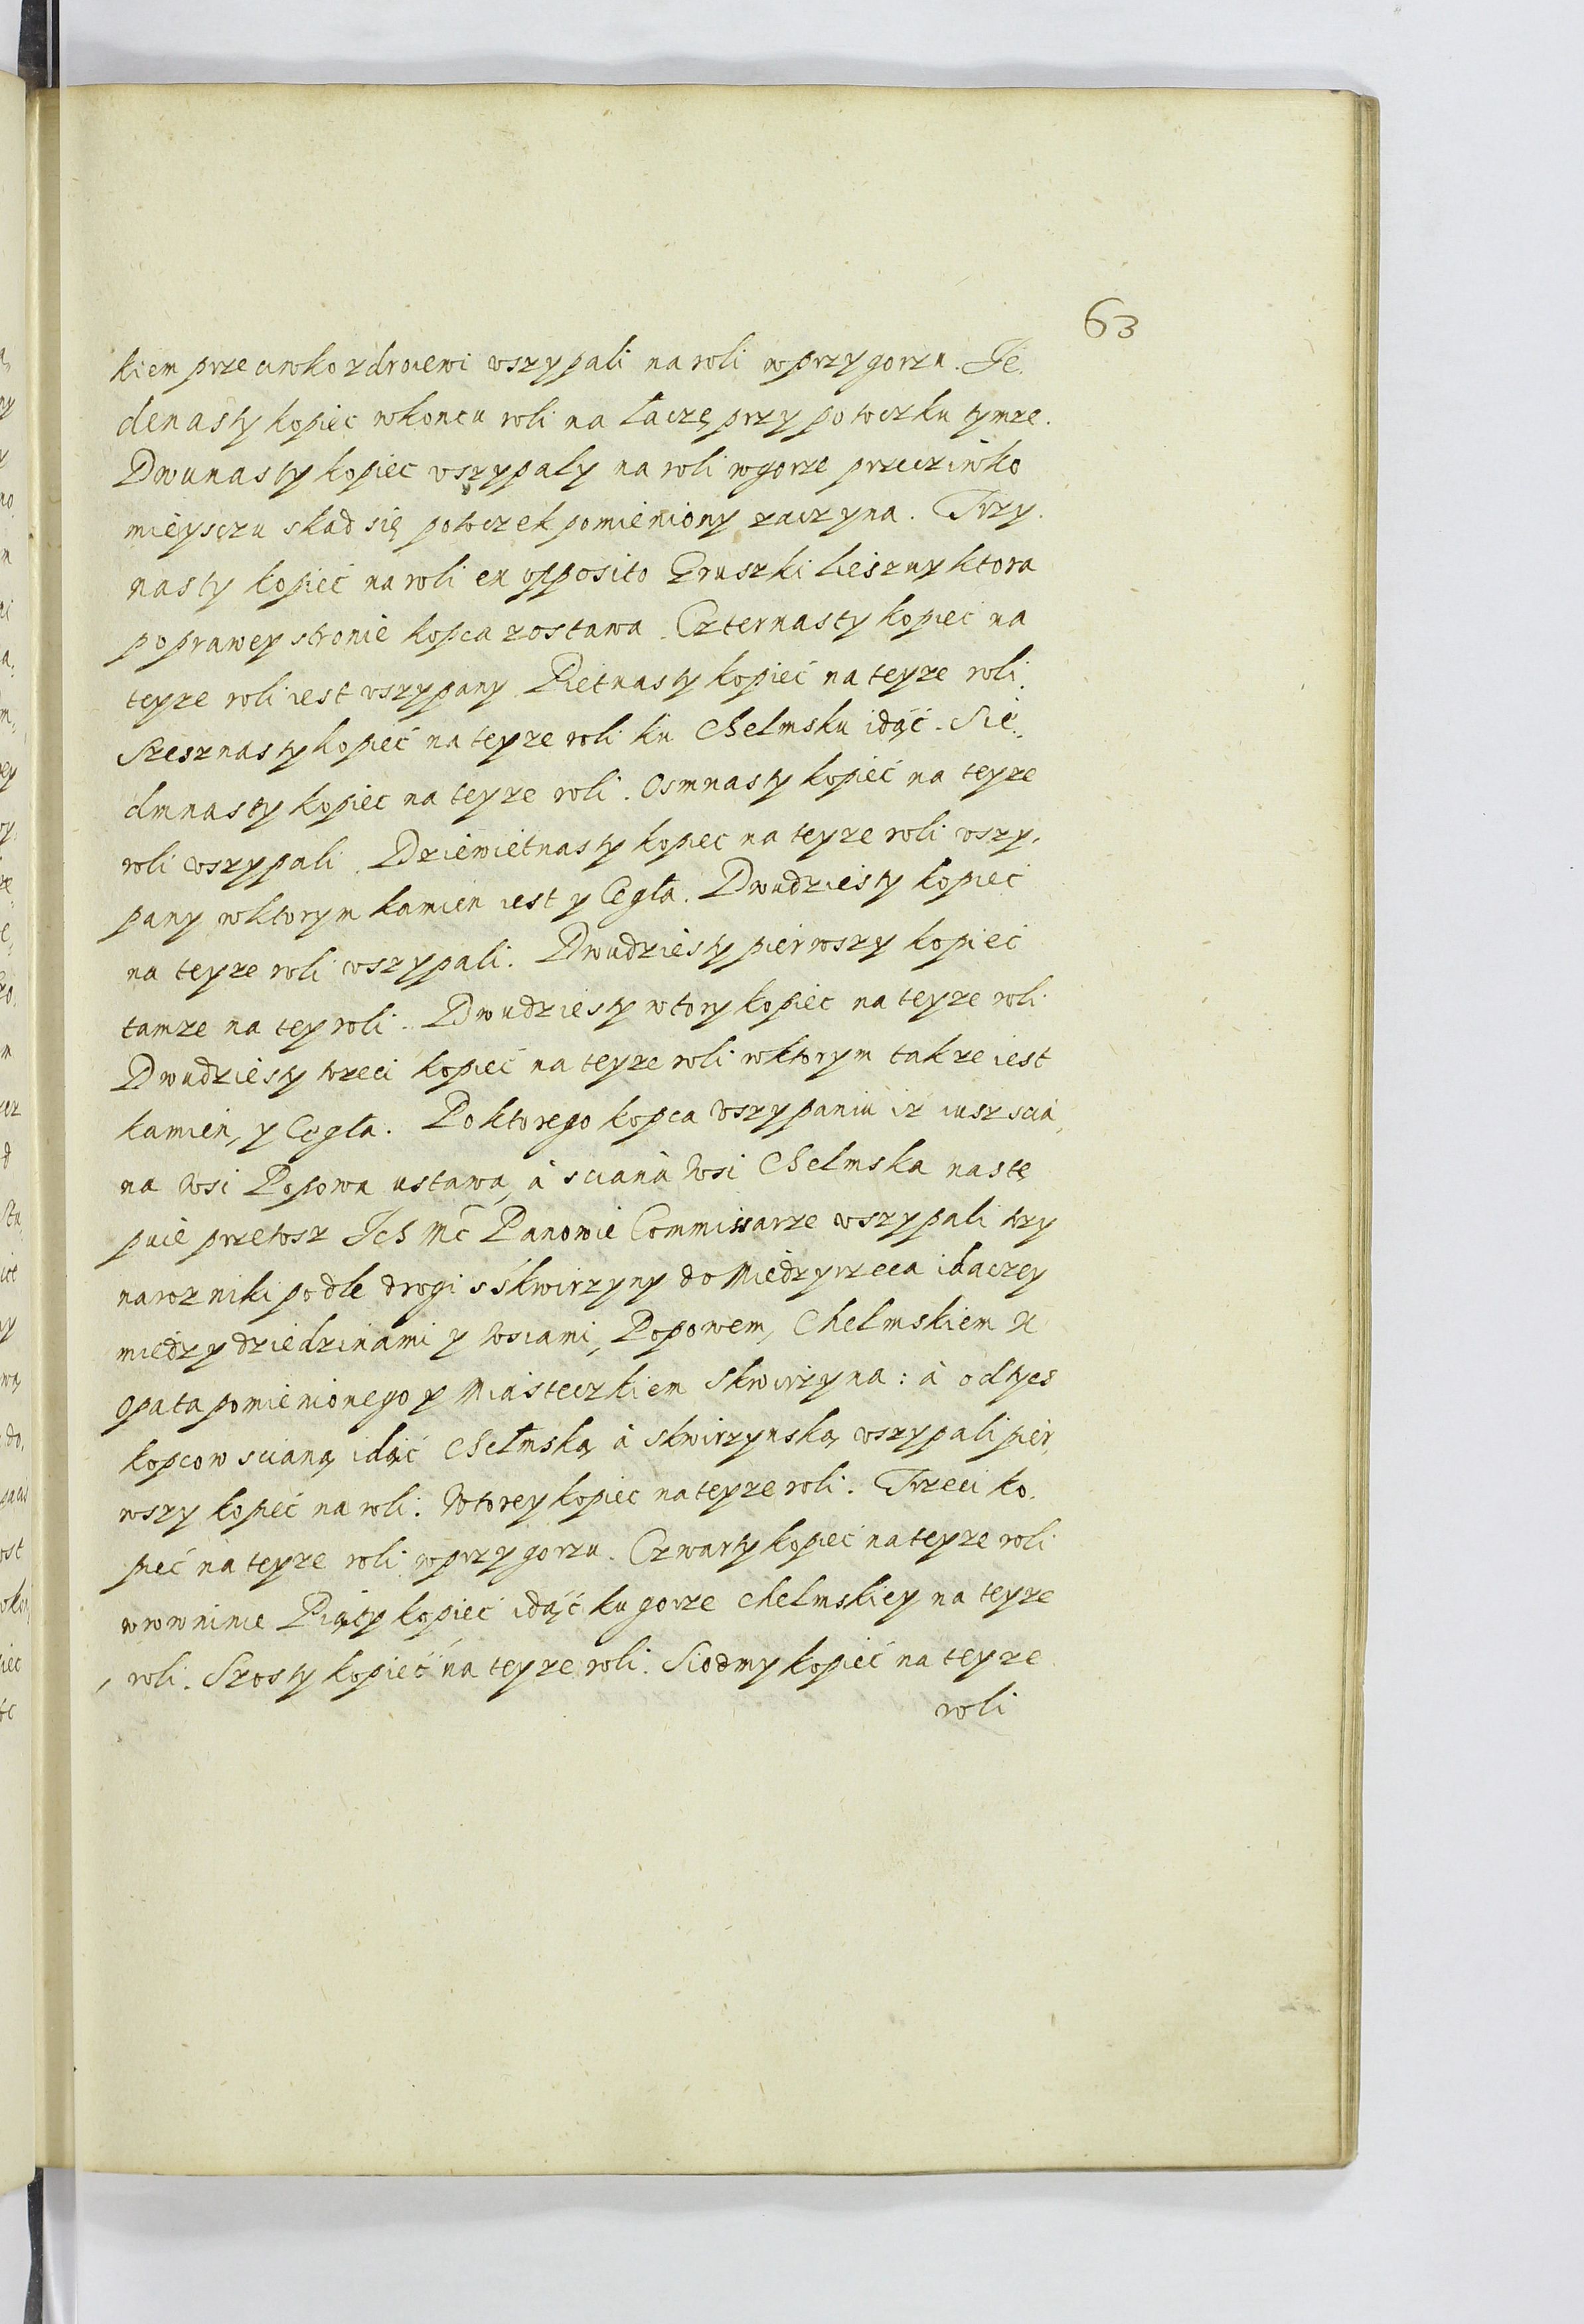 63
kiem przeciwko zdroiewi vszypali na roli w przygorzu. Je.
denasty kopiec w koncu roli na łaczę przy potoczku tymze.
Dwunasty kopiec vszypaly na roli w gorze przecziwko
mieysczu skad się potoczek pomieniony zaczyna. Trzy.
nasty kopieć na roli ex opposito Gruszki liesznyktora
po prawey stronie kopca zostawa. Czternasty kopieć na
teyze roli iest vszypany. Pietnasty kopieć na teyze roli.
Szesznasty kopieć na teyze roli ku Chelmsku idąć. Sie.
dmnasty kopiec na teyze roli. Osmnasty kopieć na teyze
roli vszypali. Dziewietnasty kopiec na teyze roli vszy.
pany w ktorym kamien iest y Cegła. Dwudziesty kopieć
na teyze roli vszypali. Dwudziesty pierwszy kopieć
tamze na tey roli. Dwudziesty wtory kopiec na teyze roli
Dwudziesty trzeci kopieć na teyze roli w ktorym takze iest
kamien, y Cegła. Po ktorego kopca vszypaniu iz iusz scia,
na Wsi Popowa ustawa, à sciana Wsi Chelmska nastę
puie przetosz Ich Mć Panowie Commissarze vszypali trzy
narozniki podle drogi s Skwirzyny do Miedzyrzeca idaczey
miedzy dziedzinami y wsiami, Popowem, Chelmskiem X
Opata pomienionego y Miasteczkiem Skwirzyna: à od tych
kopcow scianą idąć Chełmską à Skwirzynską vszypali pier,
wszy kopieć na roli. Wtorey kopiec na teyze roli. Trzeci ko.
pieć na teyze roli w przygorzu. Czwarty kopieć na teyze roli
w rowninie Piąty kopieć idąć ku gorze Chelmskiey na teyze
roli. Szosty kopieć na teyze roli. Siodmy kopieć na teyze
roli